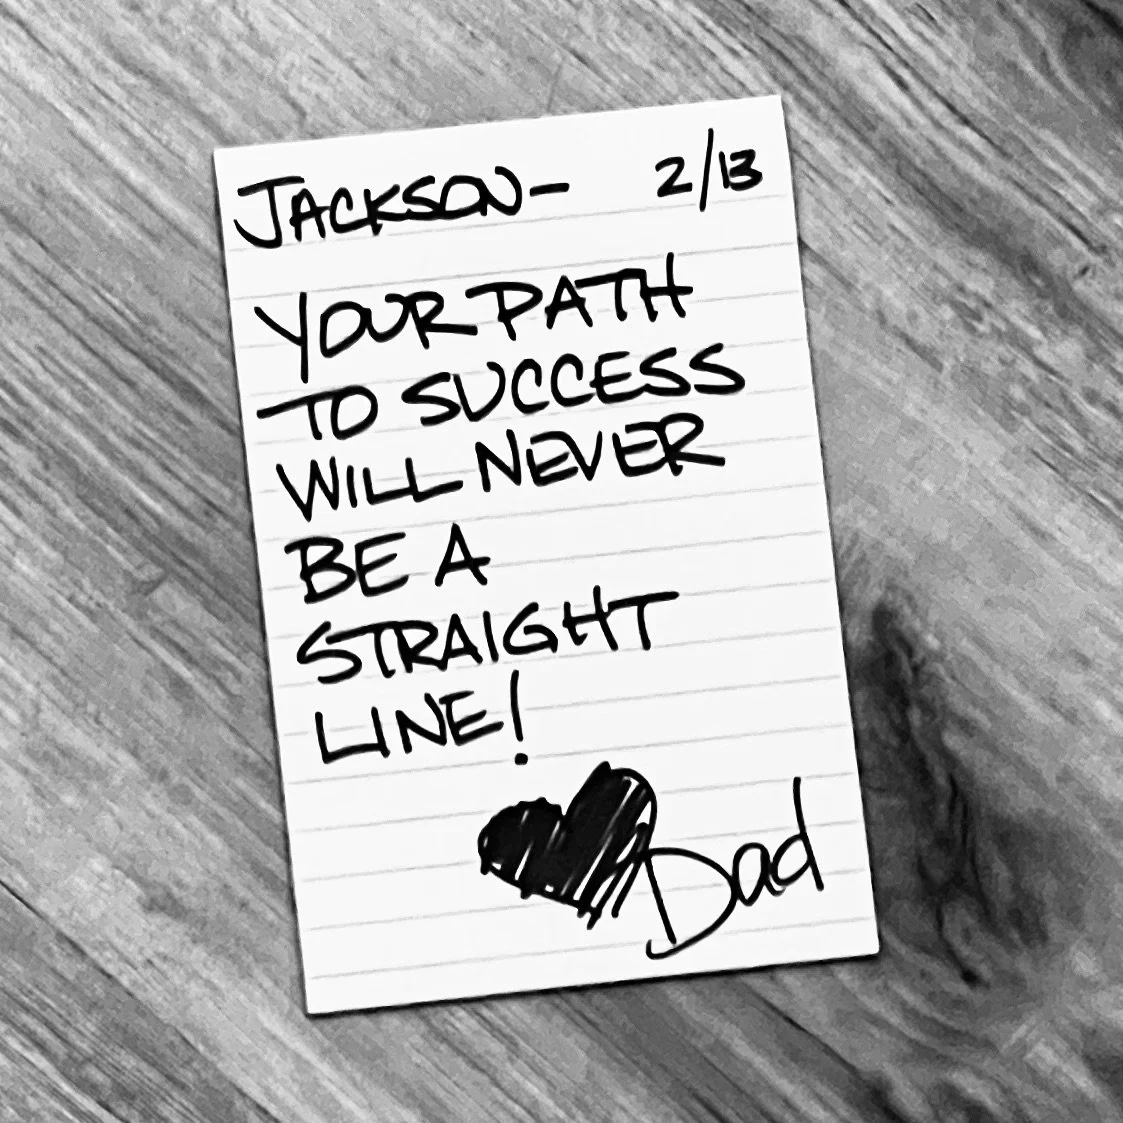 JACKSON— 2/13
YOUR PATH
TO SUCCESS
WILL NEVER
BE A
STRAIGHT
LINE!
Dad